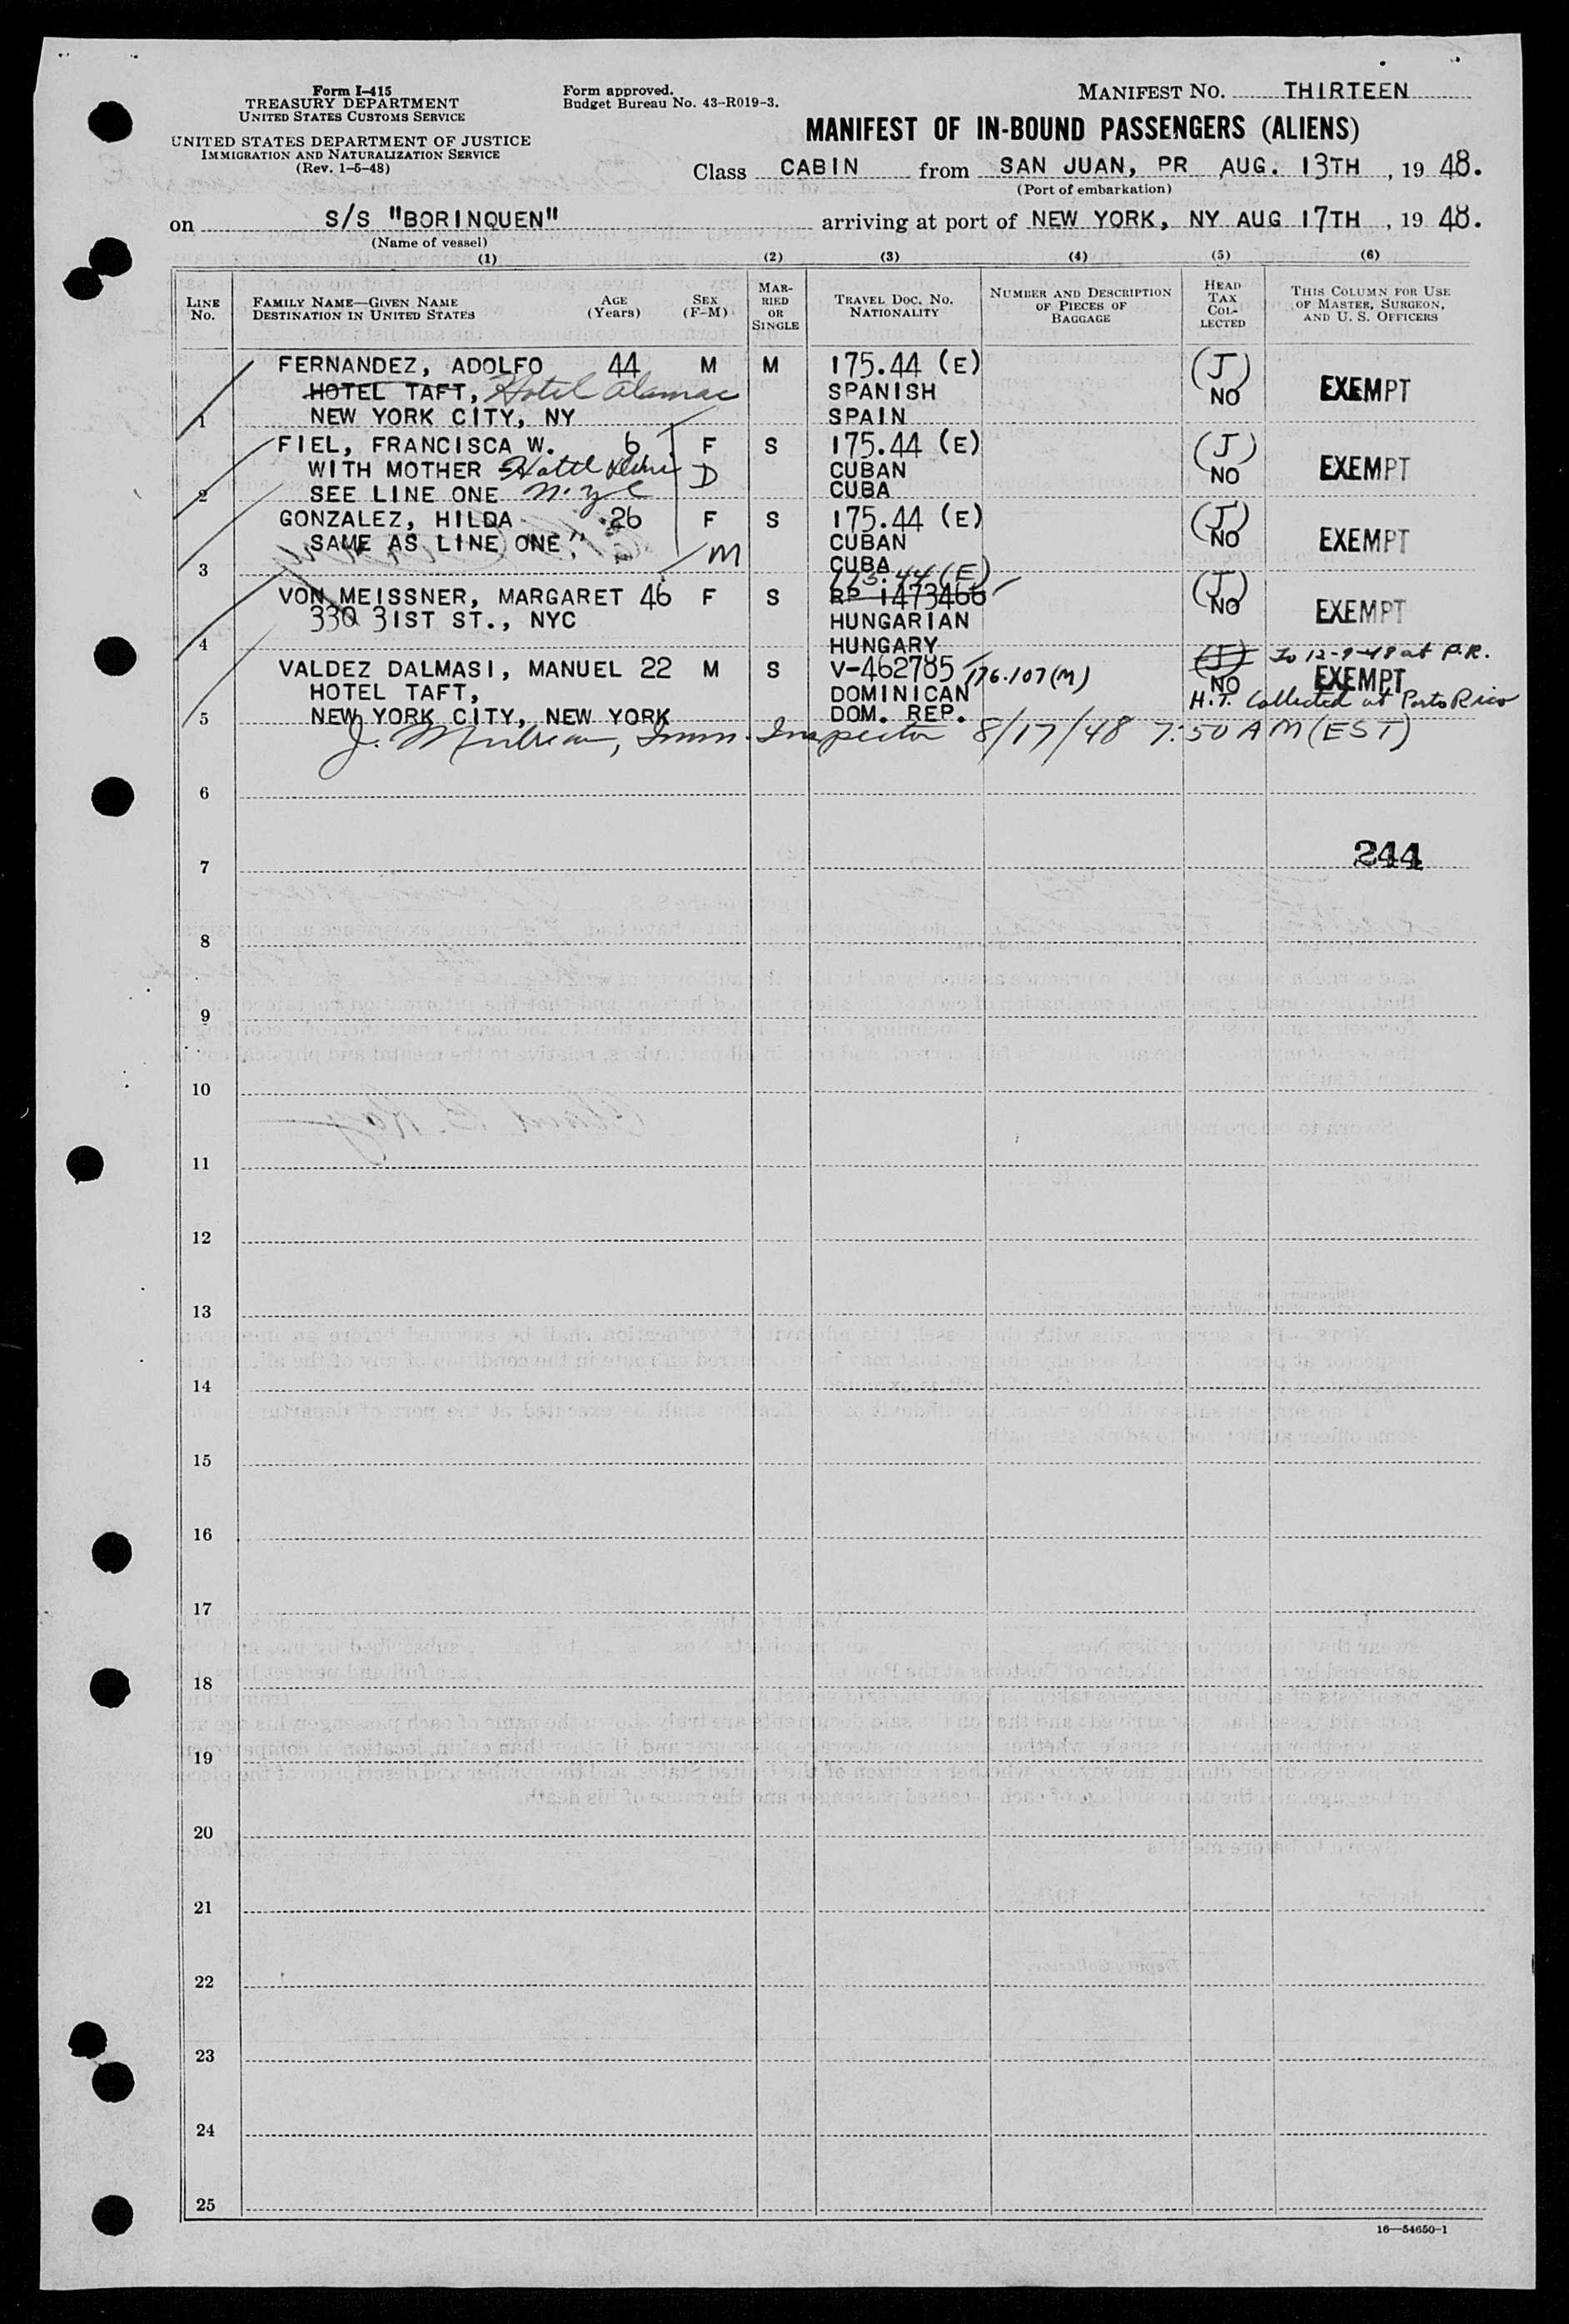 Form I-415
TREASURY DEPARTMENT
UNITED STATES CUSTOMS SERVICE
UNITED STATES DEPARTMENT OF JUSTICE
IMMIGRATION AND NATURALIZATION SERVICE
(Rev. 1-5-48)
Form approved.
Budget Bureau No. 43-R019-3.
MANIFEST NO. THIRTEEN
MANIFEST OF IN-BOUND PASSENGERS (ALIENS)
Class CABIN from SAN JUAN, PR AUG. 13TH, 19 48.
(Port of embarkation)
on S/S "BORINQUEN" arriving at port of NEW YORK, NY AUG 17TH, 19 48.
(Name of vessel)
(1) (2) (3) (4) (5) (6)
LINE No.
FAMILY NAME—GIVEN NAME
DESTINATION IN UNITED STATES
AGE (Years)
SEX (F-M)
MARRIED OR SINGLE
TRAVEL DOC. NO.
NATIONALITY
NUMBER AND DESCRIPTION OF PIECES OF BAGGAGE
HEAD TAX COLLECTED
THIS COLUMN FOR USE OF MASTER, SURGEON, AND U. S. OFFICERS
FERNANDEZ, ADOLFO 44 M M 175.44 (E) (J)
HOTEL TAFT, Hotel Alamac SPANISH NO EXEMPT
1 NEW YORK CITY, NY SPAIN
FIEL, FRANCISCA W. 6 F S 175.44 (E) (J)
WITH MOTHER Hotel D CUBAN NO EXEMPT
2 SEE LINE ONE N.Y.C CUBA
GONZALEZ, HILDA 26 F S 175.44 (E) (J)
SAME AS LINE ONE" M CUBAN NO EXEMPT
3 CUBA
175.44 (E)
VON MEISSNER, MARGARET 46 F S RP 1473466 (J) NO
330 31ST ST., NYC HUNGARIAN EXEMPT
4 HUNGARY
VALDEZ DALMASI, MANUEL 22 M S V-462785 176.107(M) (J) To 12-9-48 at P.R.
HOTEL TAFT, DOMINICAN NO EXEMPT
5 NEW YORK CITY, NEW YORK DOM. REP. H.T. Collected at Porto Rico
J. Imm. Inspector 8/17/48 7:50 AM (EST)
6
7 244
8
9
10
11
12
13
14
15
16
17
18
19
20
21
22
23
24
25
16—54650-1